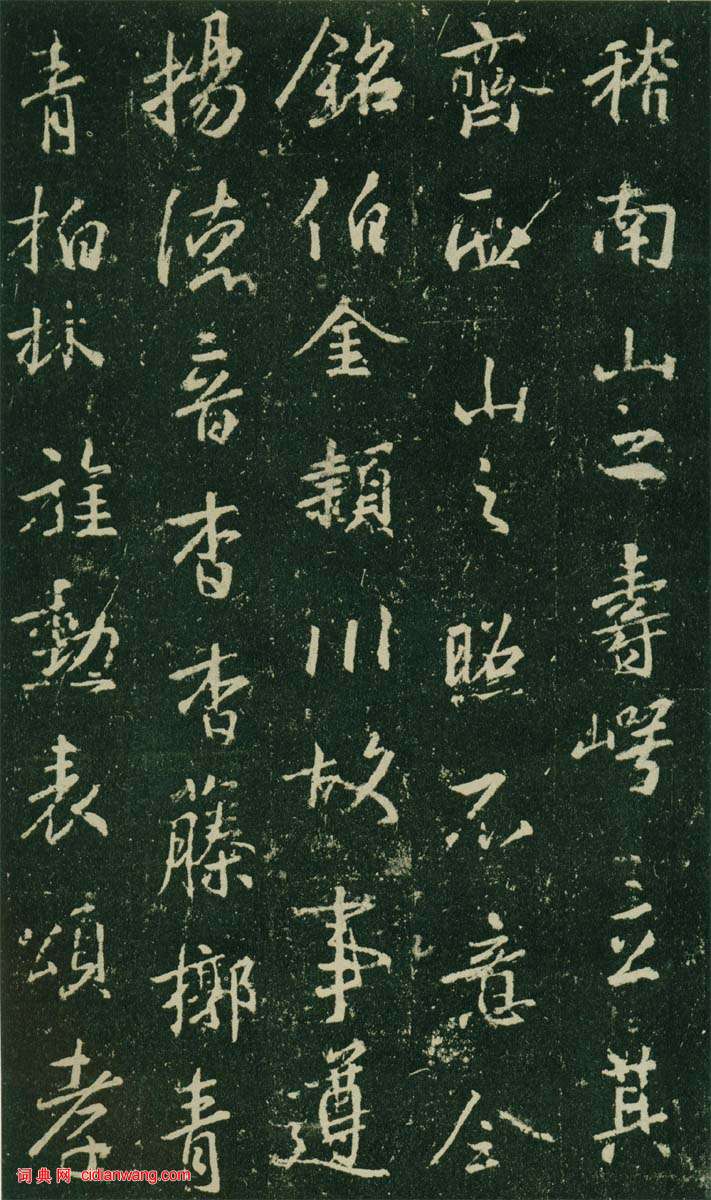 稽南山之壽崿立其
齊山之照不意今
銘伯金頴川故事遵
揚德音杳杳藤槨青
青柏林旌勳表頌孝
词典网 cidianwang.com